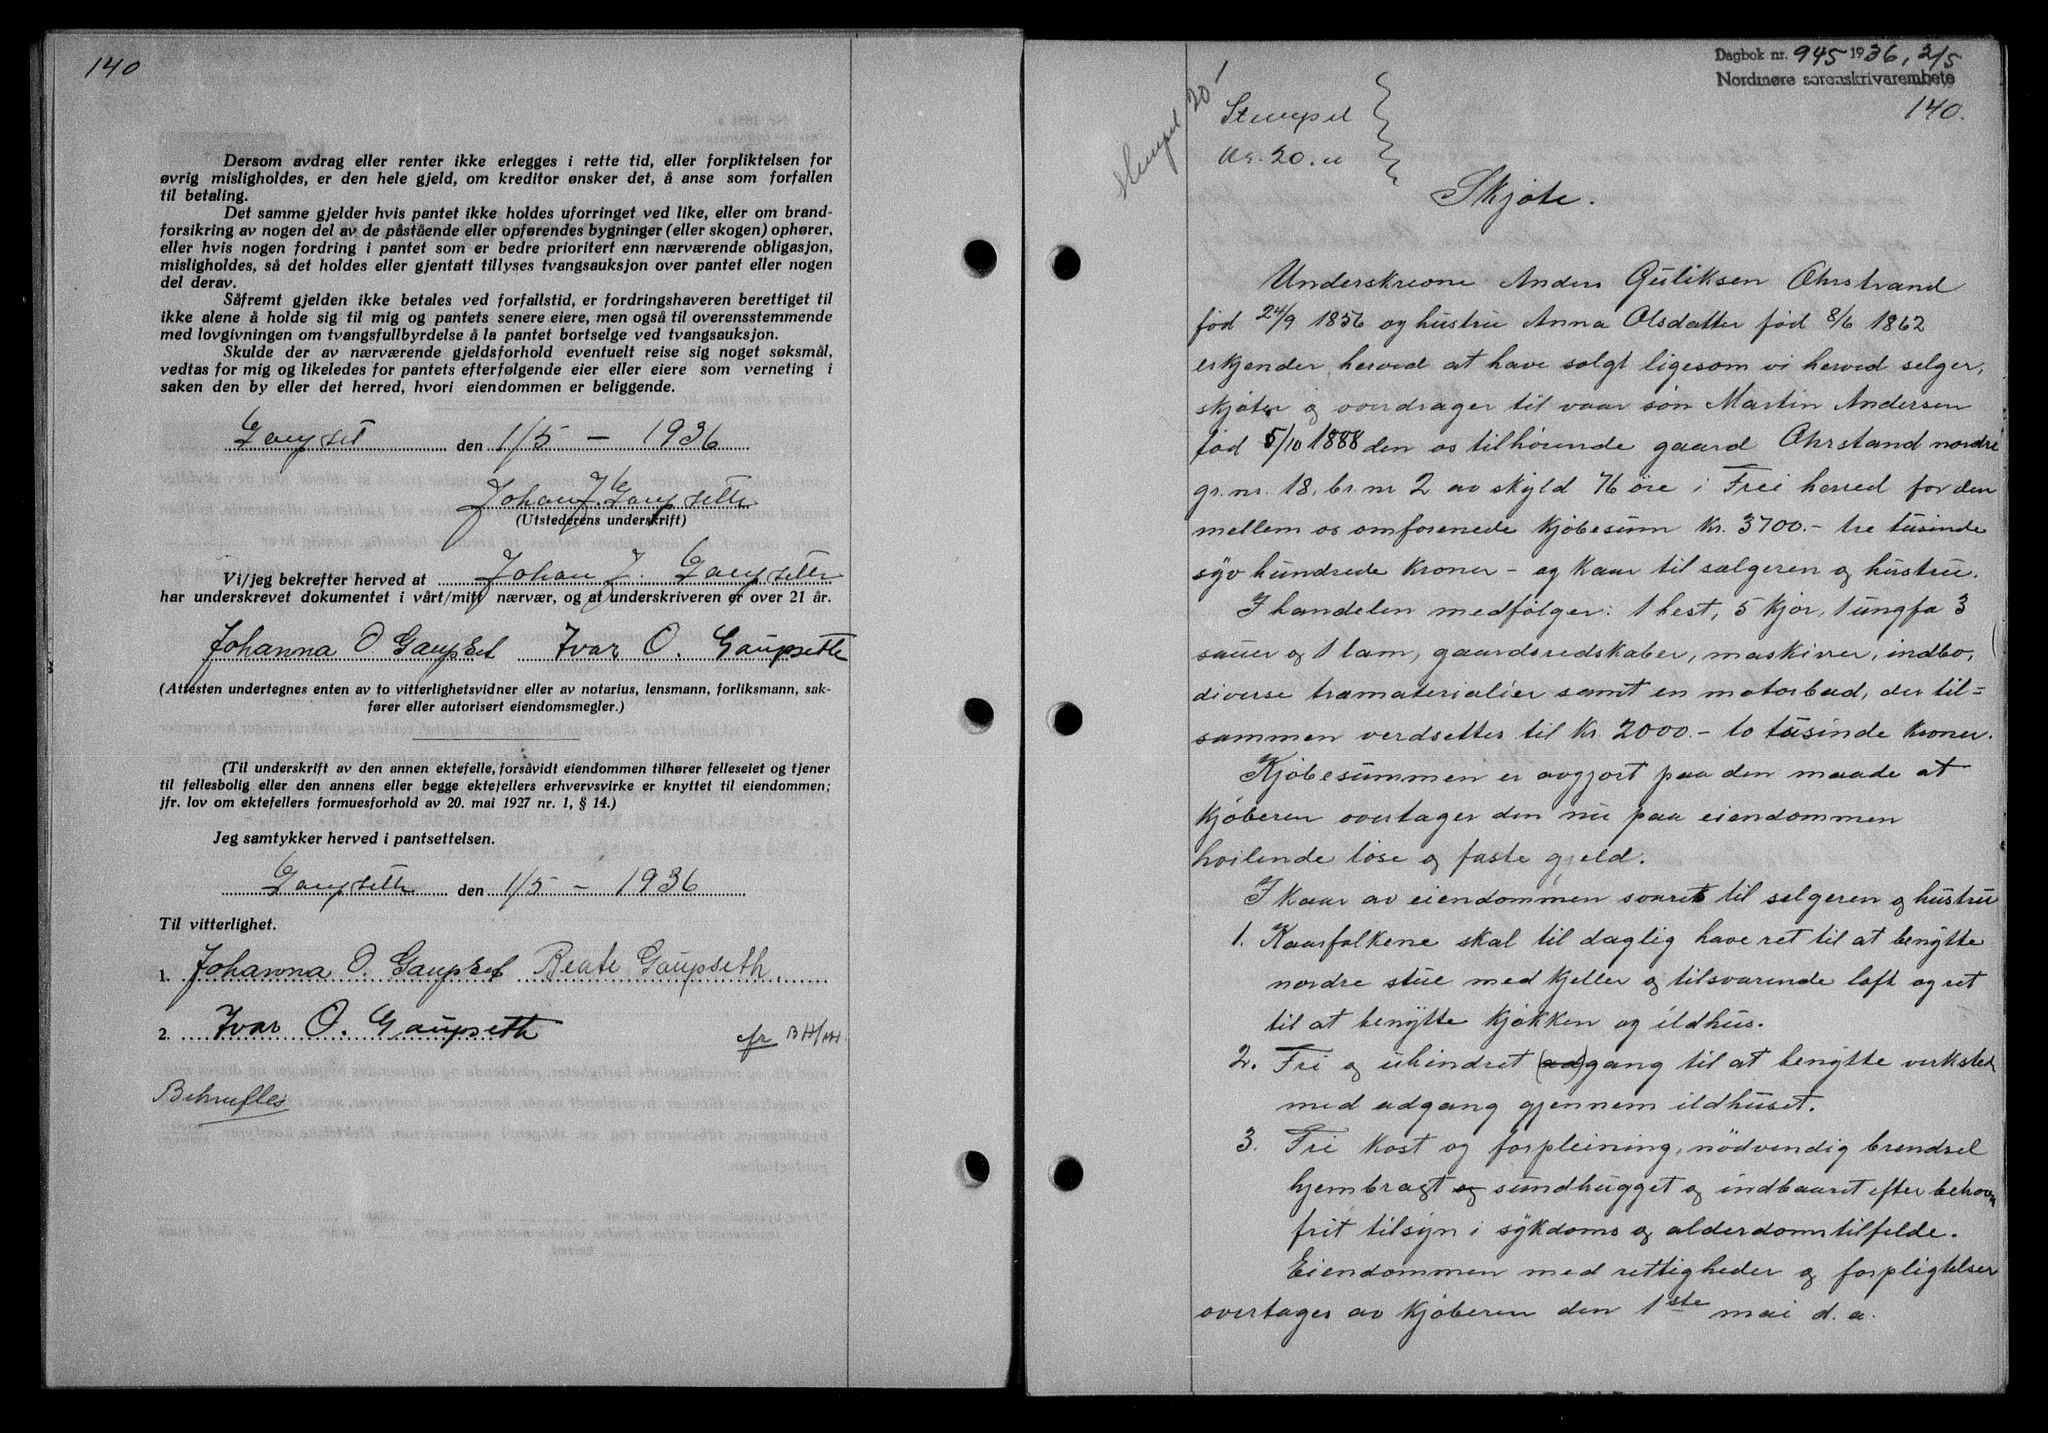 140
Dersom avdrag eller renter ikke erlegges i rette tid, eller forpliktelsen for
øvrig misligholdes, er den hele gjeld, om kreditor ønsker det, å anse som forfallen
til betaling.
Det samme gjelder hvis pantet ikke holdes uforringet ved like, eller om brand-
forsikring av nogen del av de påstående eller opførendes bygninger (eller skogen) ophører,
eller hvis nogen fordring i pantet som er bedre prioritert enn nærværende obligasjon,
misligholdes, så det holdes eller gjentatt tillyses tvangsauksjon over pantet eller nogen
del derav.
Såfremt gjelden ikke betales ved forfallstid, er fordringshaveren berettiget til
ikke alene å holde sig til mig og pantets senere eiere, men også til overensstemmende
med lovgivningen om tvangsfullbyrdelse å la pantet bortselge ved tvangsauksjon.
Skulde der av nærværende gjeldsforhold eventuelt reise sig noget søksmål,
vedtas for mig og likeledes for pantets efterfølgende eier eller eiere som verneting i
saken den by eller det herred, hvori eiendommen er beliggende.
Gaupset den 1/5 - 1936
Johan J. Gaupseth
(Utstederens underskrift)
Vi/jeg bekrefter herved at Johan J. Gaupseth
har underskrevet dokumentet i vårt/mitt nærvær, og at underskriveren er over 21 år.
Johanna O Gaupset Ivar O. Gaupseth
(Attesten undertegnes enten av to vitterlighetsvidner eller av notarius, lensmann, forliksmann, sak-
fører eller autorisert eiendomsmegler.)
(Til underskrift av den annen ektefelle, forsåvidt eiendommen tilhører felleseiet og tjener
til fellesbolig eller den annens eller begge ektefellers erhvervsvirke er knyttet til eiendommen;
jfr. lov om ektefellers formuesforhold av 20. mai 1927 nr. 1, § 14.)
Jeg samtykker herved i pantsettelsen.
Gaupseth den 1/5 - 1936
Til vitterlighet.
1. Johanna O. Gaupset Beate Gaupseth.
2. Ivar O. Gaupseth
cfr
Dagbok nr. 945 1936, 2/5
Nordmøre sorenskrivarembete
140.
Stempel 20
Stempel
Kr. 20.
Skjøte.
Underskrevne Anders Guliksen Ohrstrand
fød 24/9 1856 og hustru Anna Olsdatter fød 8/6 1862
erkjender herved at have solgt ligesom vi herved selger,
skjøter og overdrager til vaar søn Martin Andersen
fød 5/10 1888 den os tilhørende gaard Ohrstand nordre
gr. nr. 18, br. nr 2 av skyld 76 øre i Frei herred for den
mellem os omforenede kjøbesum Kr. 3700.- tre tusinde
syv hundrede kroner - og kaar til sælgeren og hustru.
I handelen medfølger: 1 hest, 5 kjør, 1 ungfæ 3
sauer og 1 lam, gaardsredskaber, maskiner, indbo,
diverse træmaterialier samt en motorbaad, der til=
sammen verdsettes til kr. 2000.- to tusinde kroner.
Kjøbesummen er avgjort paa den maade at
kjøberen overtager den nu paa eiendommen
hvilende løse og faste gjeld.
I kaar av eiendommen svares til selgeren og hustru
1. Kaarfolkene skal til daglig have ret til at benytte
nordre stue med kjeller og tilsvarende loft og ret
til at benytte kjøkken og ildhus.
2. Fri og uhindret (ad)gang til at benytte verksted
med adgang gjennem ildhuset.
3. Fri kost og forpleining, nödvendig brendsel
hjembragt og sundhugget og indbaaret efter behov
frit tilsyn i sykdoms og alderdomstilfelde.
Eiendommen med rettigheder og forpligtelser
overtages av kjøberen den 1ste mai d. a.